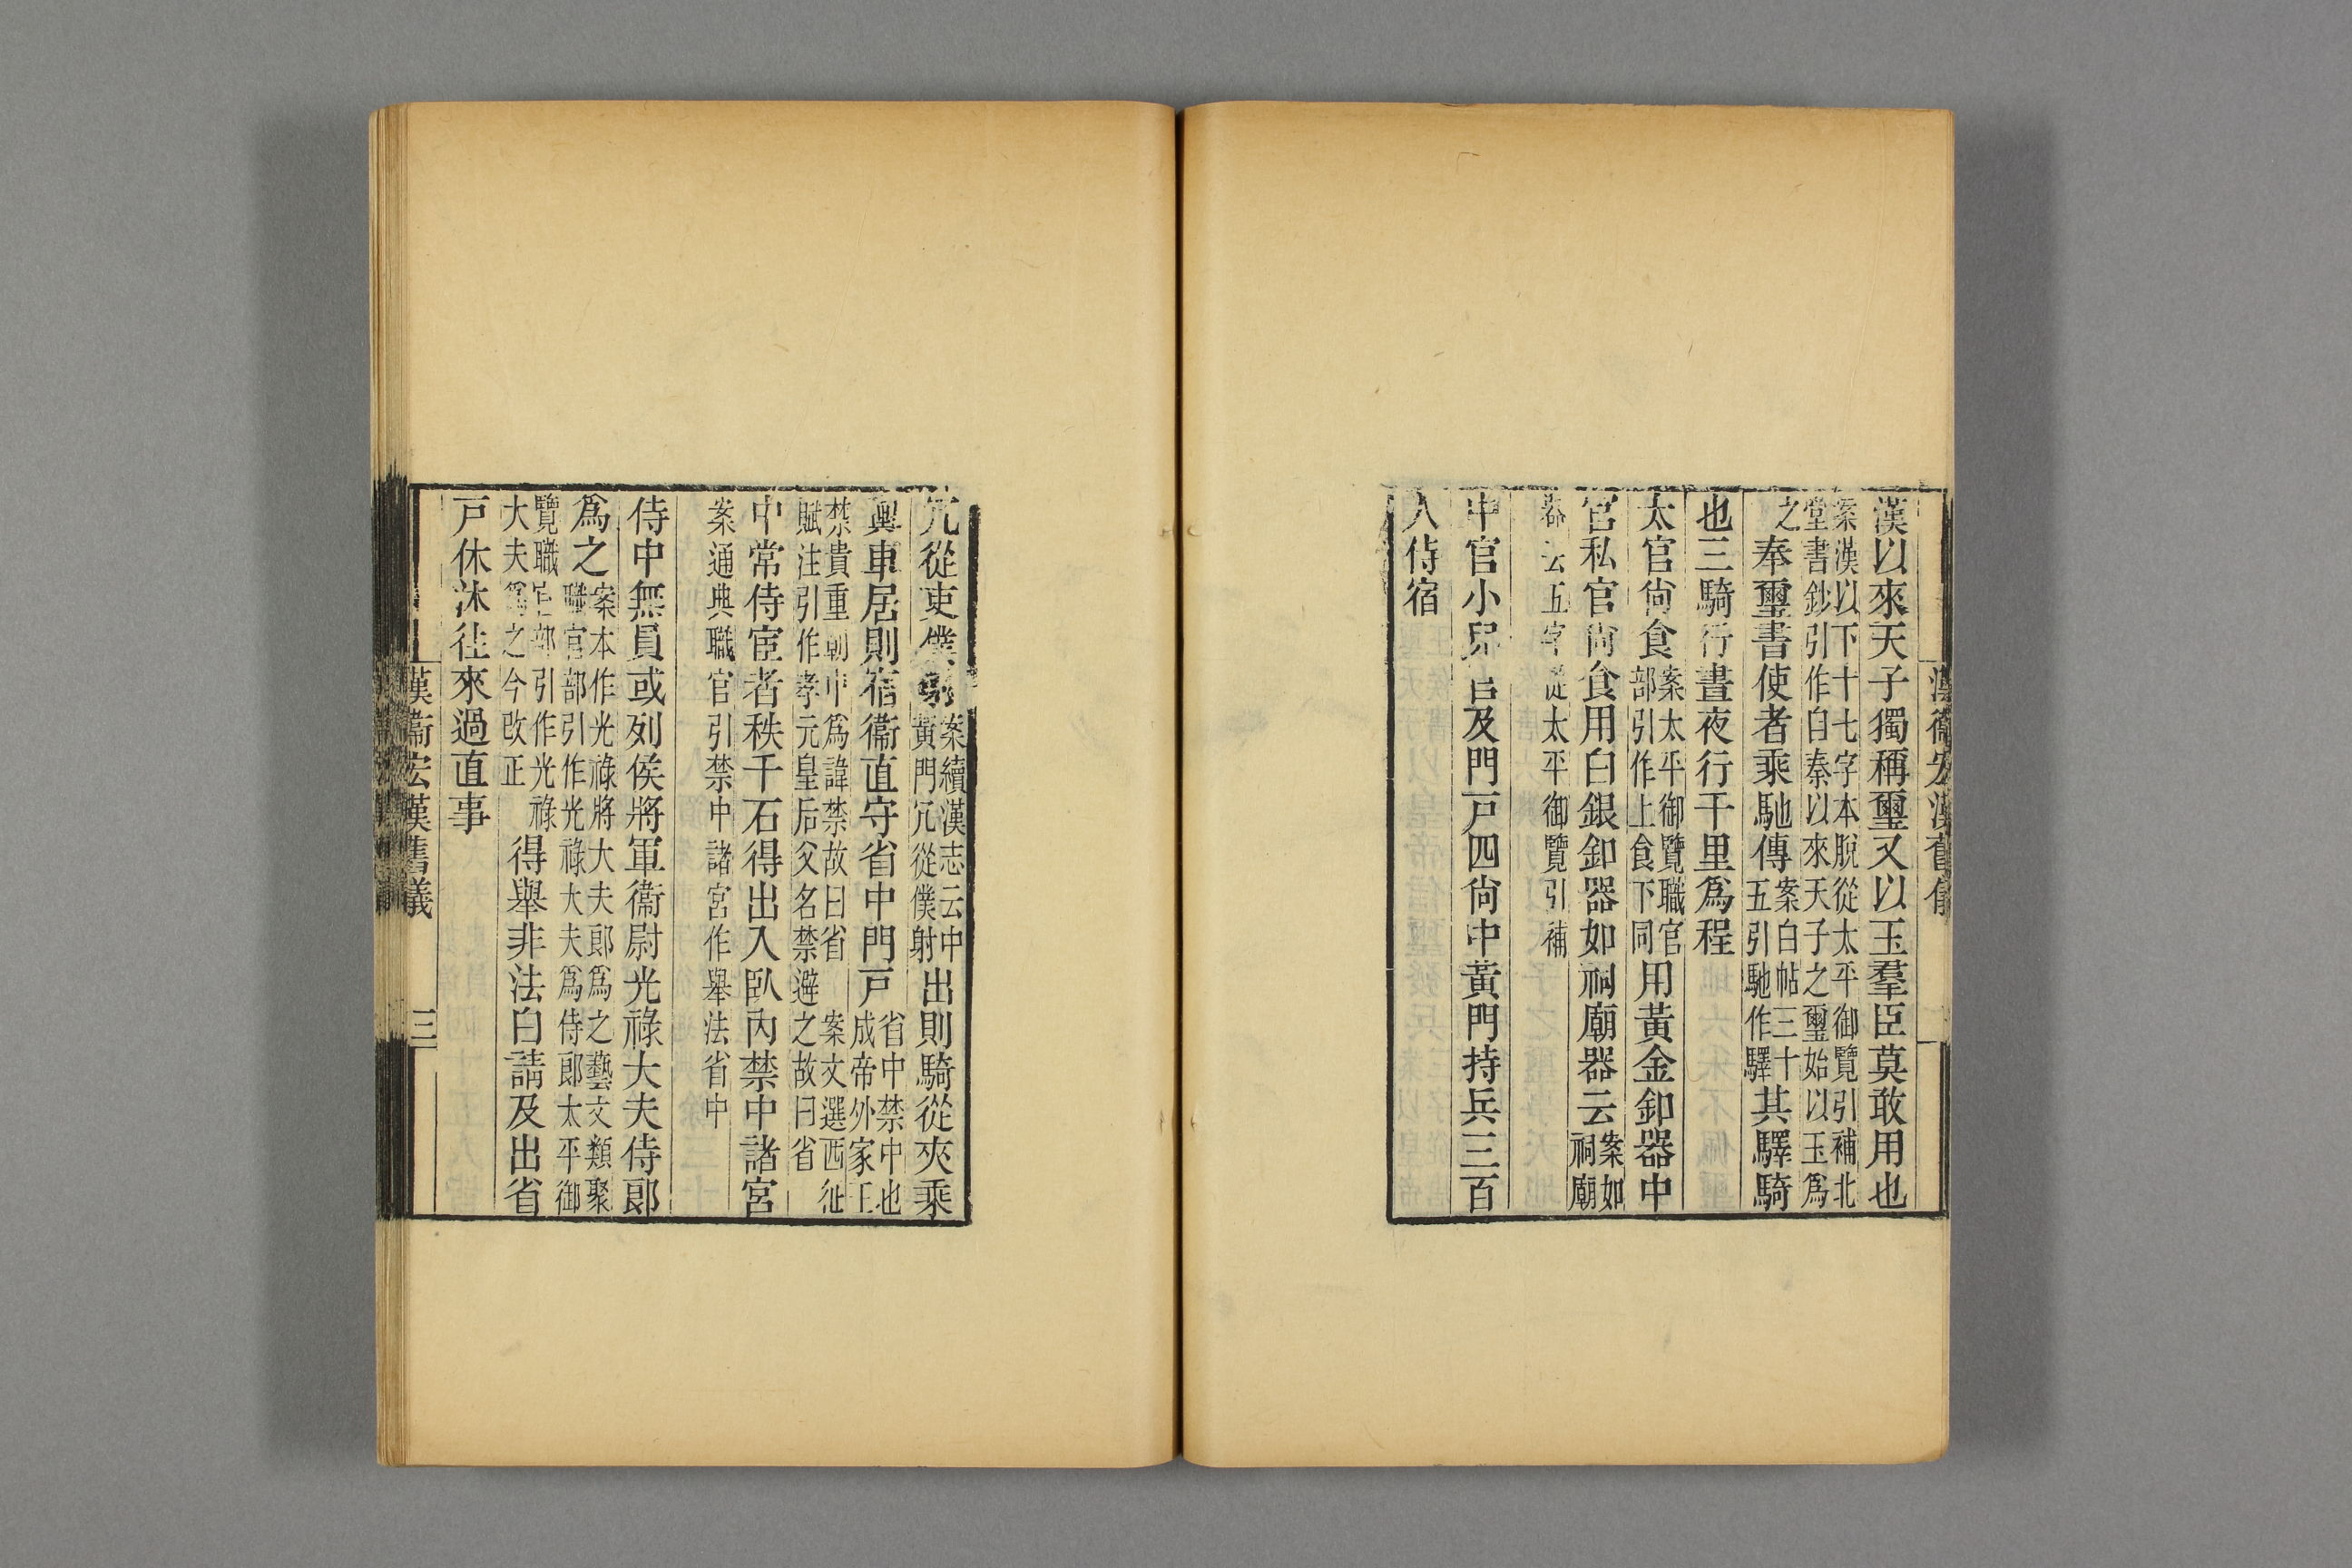 漢衞宏漢舊儀
漢以來天子獨稱璽又以玉羣臣莫敢用也
案漢以下十七字本脫從太平御覽引補北
堂書鈔引作自秦以來天子之璽始以玉爲
之奉璽書使者乘馳傳案白帖三十五引馳作驛其驛騎
也三騎行晝夜行千里爲程
太官尙食案太平御覽職官部引作上食下同用黃金釦器中
官私官尙食用白銀釦器如祠廟器云案如祠廟
器云五字從太平御覽引補
中官小兒官及門戸四尙中黃門持兵三百
入侍宿
冗從吏僕射案續漢志云中黃門冗從僕射出則騎從夾乘
輿車居則宿衞直守省中門戸省中禁中也成帝外家王
禁貴重朝中爲諱禁故曰省 案文選西征
賦注引作孝元皇后父名禁避之故曰省
中常侍宦者秩千石得出入臥內禁中諸宮
案通典職官引禁中諸宮作舉法省中
侍中無員或列侯將軍衞尉光祿大夫侍郞
爲之案本作光祿將大夫郞爲之藝文類聚職官部引作光祿大夫爲侍郞太平御
覽職官部引作光祿大夫爲之今改正得舉非法白請及出省
戸休沐往來過直事
漢衞宏漢舊儀 三